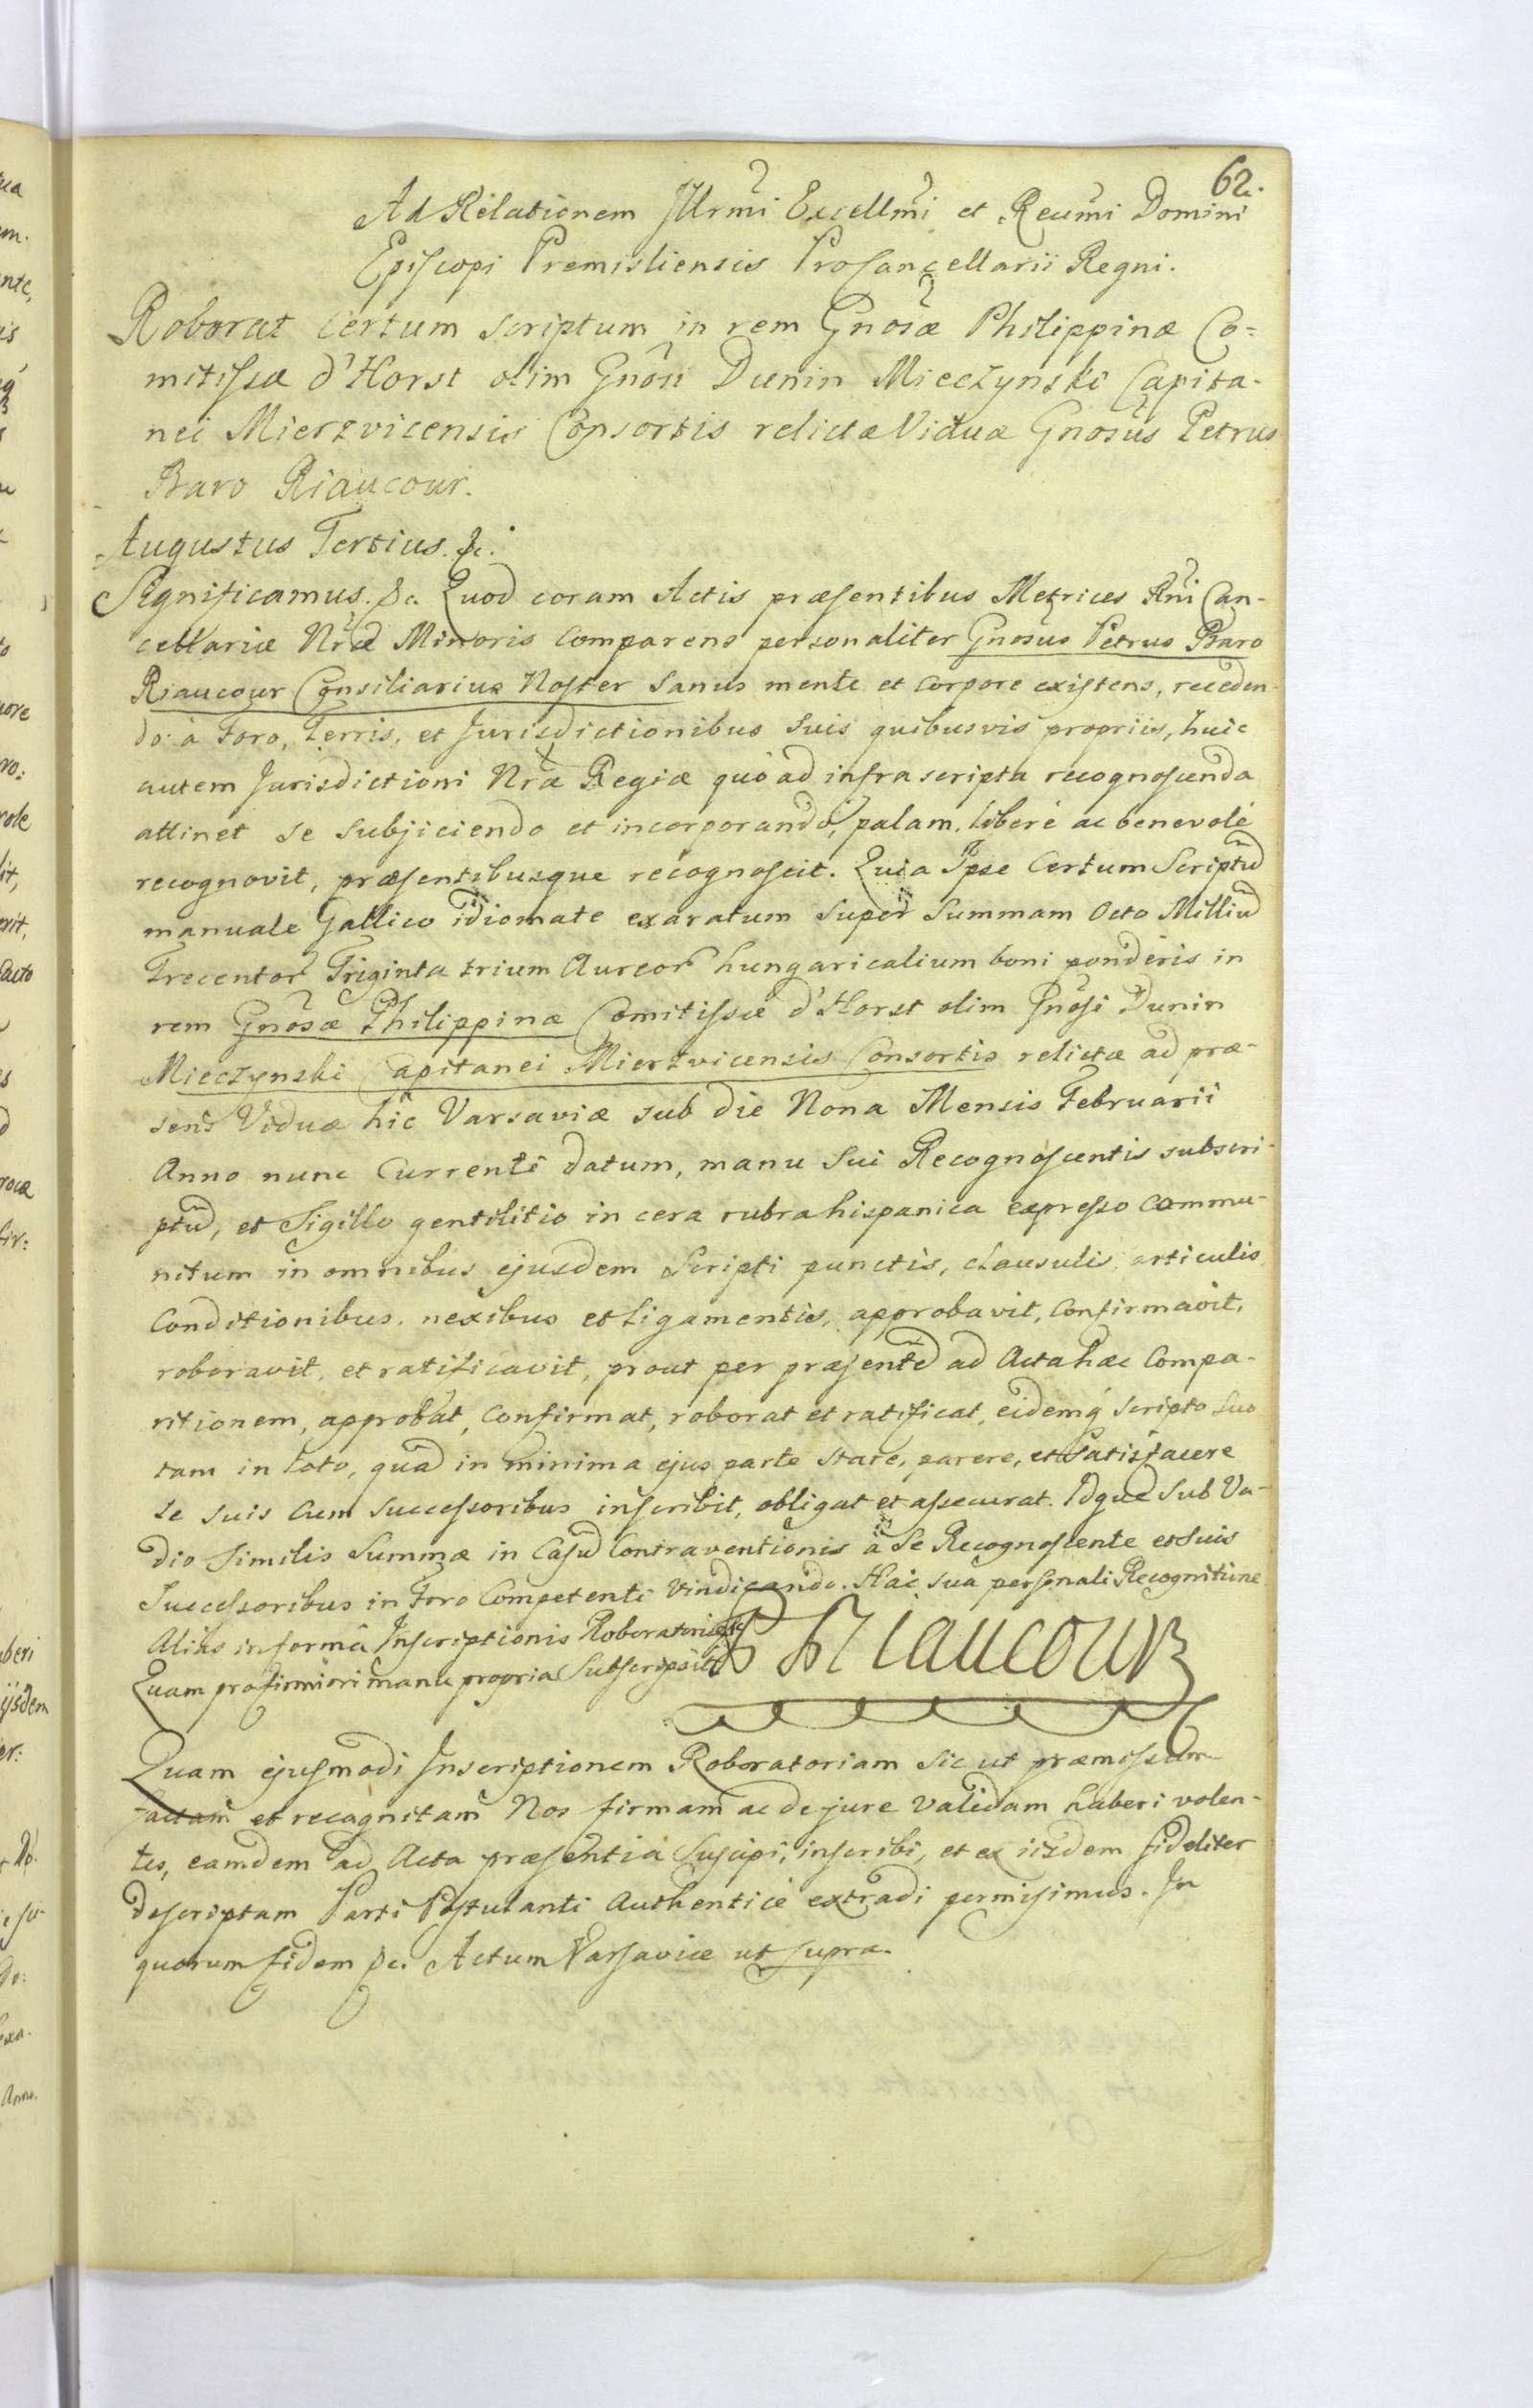 62.
Ad Relationem Jllrmi Excellmi et Reumi Domini
Episcopi Premisliensis ProCancellarii Regni.
Roborat certum scriptum in rem Gnosæ Philippinæ Co=
mitissæ d'Horst olim Gnosi Dunin Mieczynski Capita-
nei Mierzvicensis Consortis relictæ Viduæ Gnosus Petrus
Baro Riaucour.
Augustus Tertius. &c.
Significamus. &c. Quod coram Actis præsentibus Metrices Rni Can-
cellariæ Nræ Minoris Comparens personaliter Gnosus Petrus Baro
Riaucour Consiliarius Noster Sanus mente et corpore existens, receden-
do à Foro, Terris, et Jurisdictionibus Suis quibusvis propriis, huic
autem Jurisdictioni Nræ Regiæ quò ad infra scripta recognoscenda
attinet se Subjiciendo et incorporando, palam, liberè ac benevolè
recognovit, præsentibusque recognoscit. Quia Ipse Certum Scriptu
manuale Gallico idiomate exaratum Super Summam Octo Milliu
Trecentor Triginta trium Aureor hungaricalium boni ponderis in
rem Gnosæ Philippinæ Comitissæ d'Horst olim Gnosi Dunin
Mieczynski Capitanei Mierzvicensis Consortis relictæ ad præ-
sens Viduæ hic Varsaviæ sub die Nona Mensis Februarii
Anno nunc Currenti datum, manu Sui Recognoscentis subscri-
ptu, et Sigillo gentilitio in cera rubra hispanica expresso commu-
nitum in omnibus ejusdem Scripti punctis, clausulis, articulis
Conditionibus, nexibus et ligamentis, approbavit, Confirmavit,
roboravit, et ratificavit, prout per præsente ad Acta hæc Compa-
ritionem, approbat, Confirmat, roborat et ratificat, eidemq scripto Suo
tam in toto, qua in minima ejus parte stare, parere, et Satisfacere
se suis cum Successoribus inscribit, obligat et assecurat. Idque Sub Va-
dio similis Summæ in Casu Contraventionis à Se Recognoscente et Suis
Successoribus in Foro Competenti Vindicando. Hac sua personali Recognitione
Alias in formâ Inscriptionis Roboratoriæ
Quam pro firmiori manu propria Subscripsit P Riaucour
Quam ejusmodi Inscriptionem Roboratoriam Sic ut præmissum
factam et recognitam Nos firmam ac de jure validam haberi volen-
tes, eamdem ad Acta præsentia Suscipi, inscribi, et ex iisdem fideliter
descriptam Parti Postulanti Authenticè extradi permisimus. In
quorum fidem &c. Actum Varsaviæ ut supra.